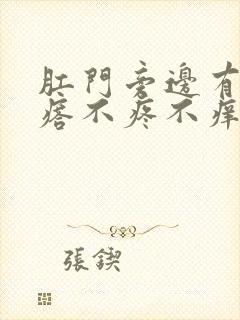 肛門旁邊有
瘩不疼不痒
張鍥